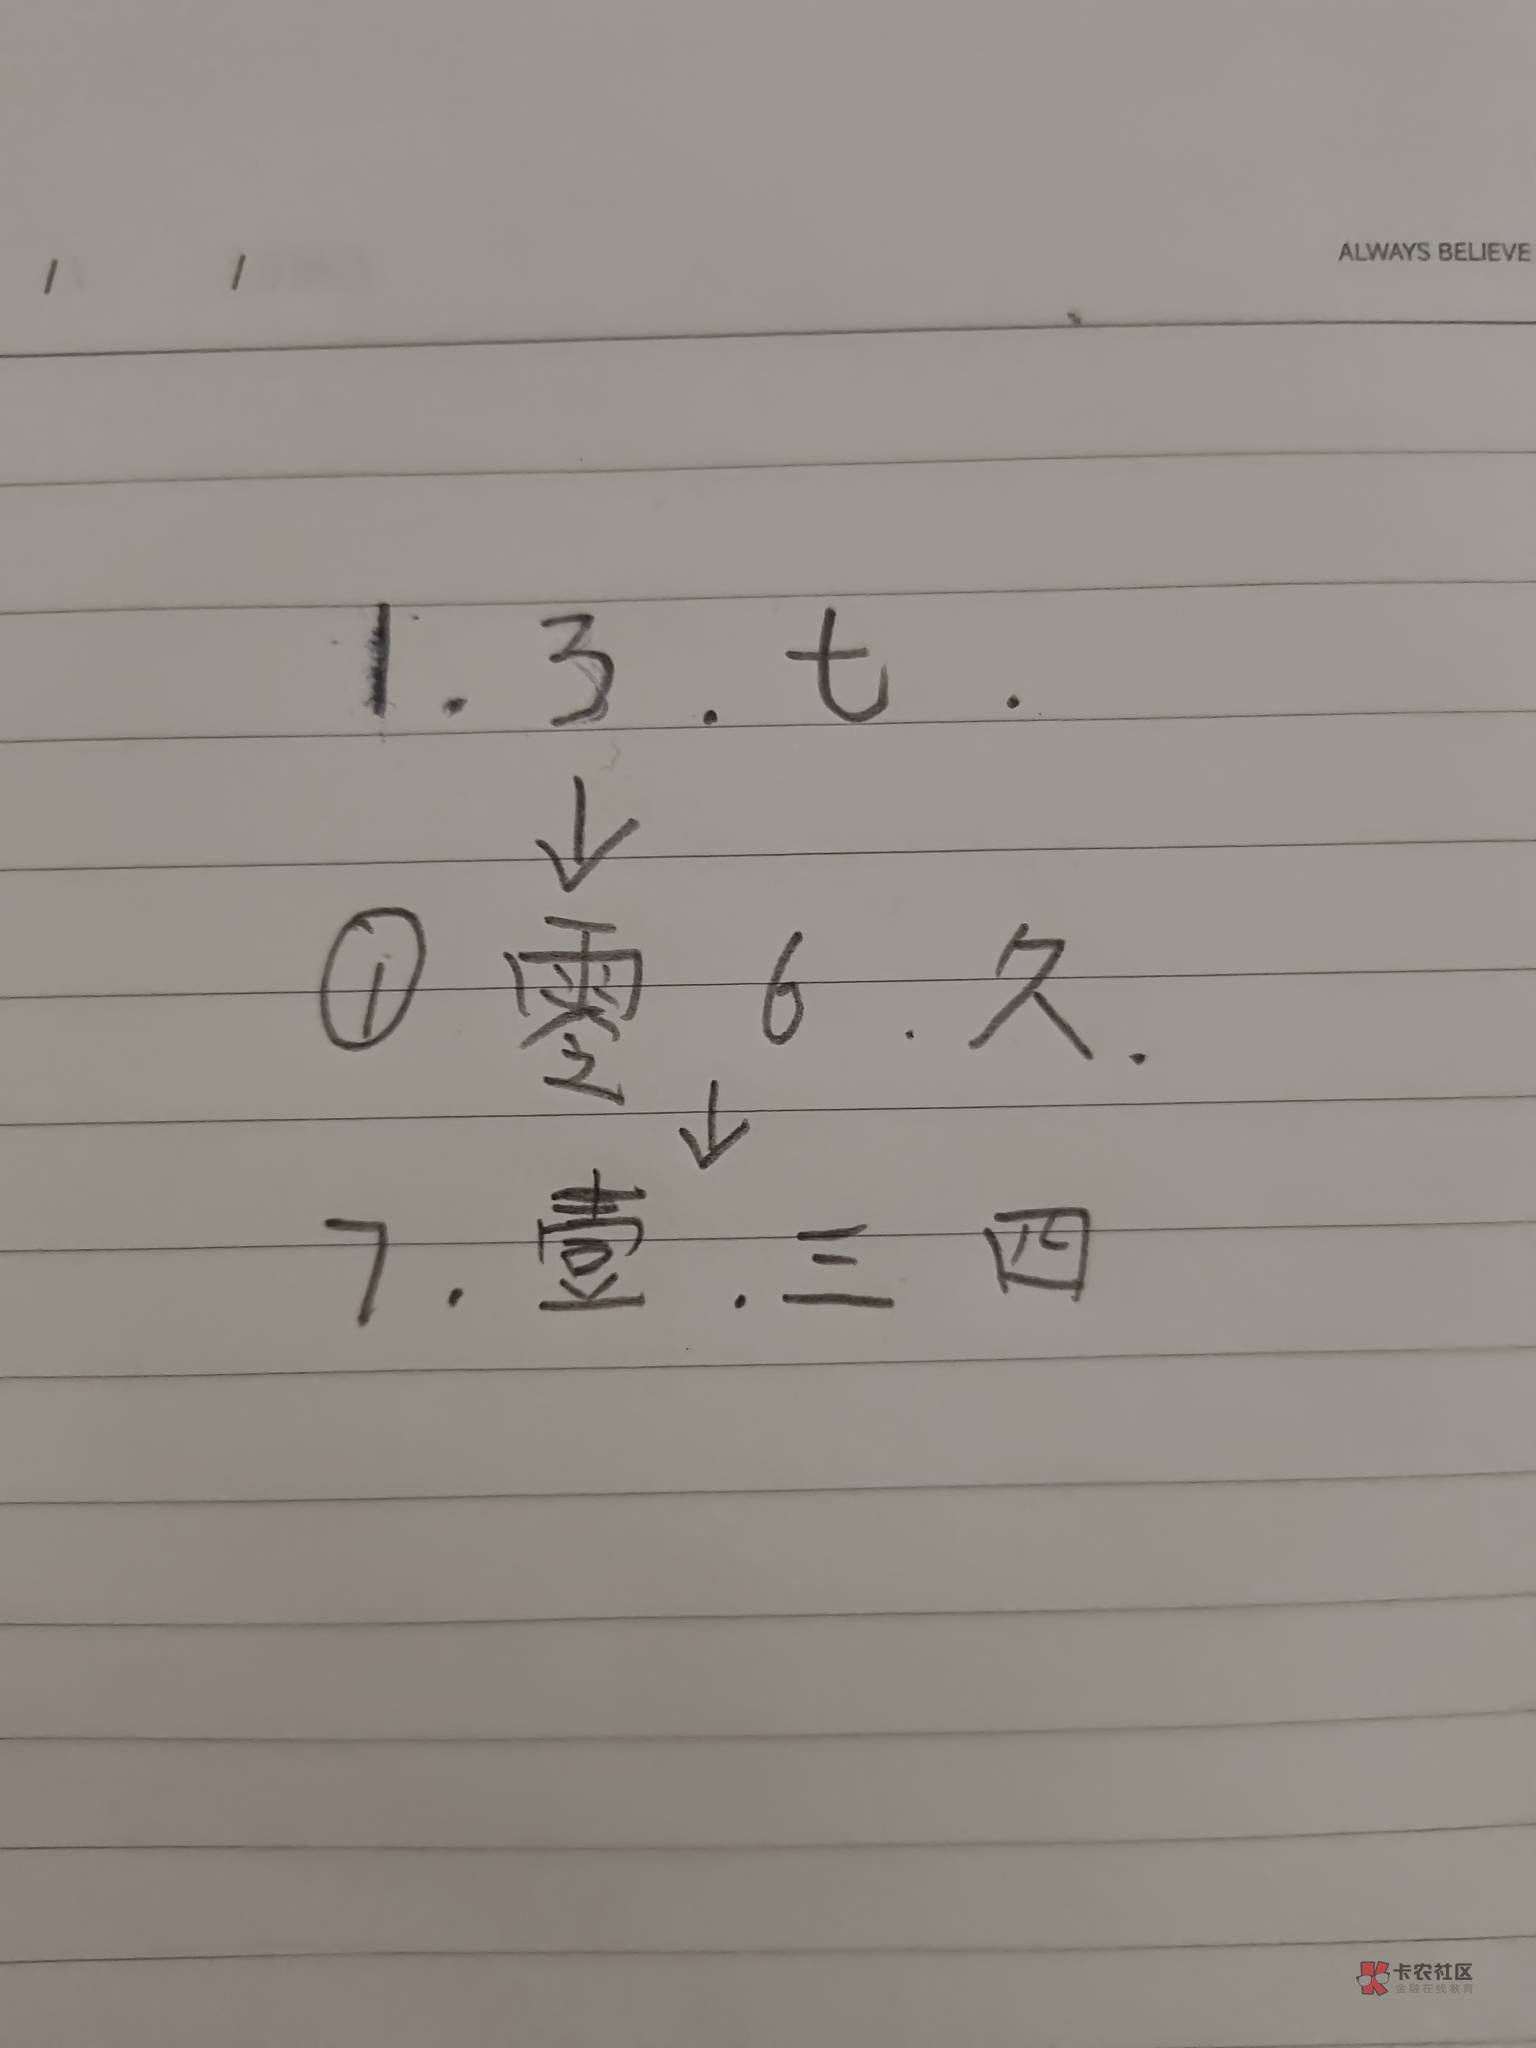 / /
ALWAYS BELIEVE
1.3.七.
↓
①零6.久.
↓
7.壹.三四
卡农社区
金融在线教育